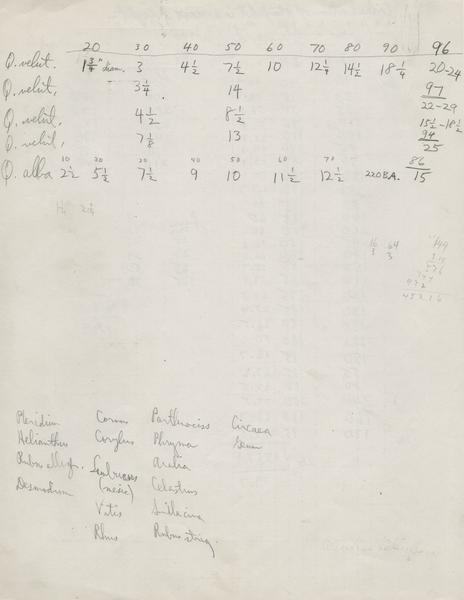 20 30 40 50 60 70 80 90 96
Q. velut. 1 3/4" diam. 3 4 1/2 7 1/2 10 12 1/4 14 1/2 18 1/4 20-24
Q. velut. 3 1/4 14 97
22-29
Q. velut. 4 1/2 8 1/2 15 1/2-18 1/2
Q. velut. 7 1/8 13 94
25
10 20 30 40 50 60 70 86
Q. alba 2 1/2 5 1/2 7 1/2 9 10 11 1/2 12 1/2 220 BA. 15
16 64
3 3
Pteridium Cornus Parthenociss Circaea
Helianthus Corylus Phryma Geum
Rubus alleg. Sambucus Aralia
Desmodium Celastrus
Vitis Smilacina
Rhus Rubus strig.